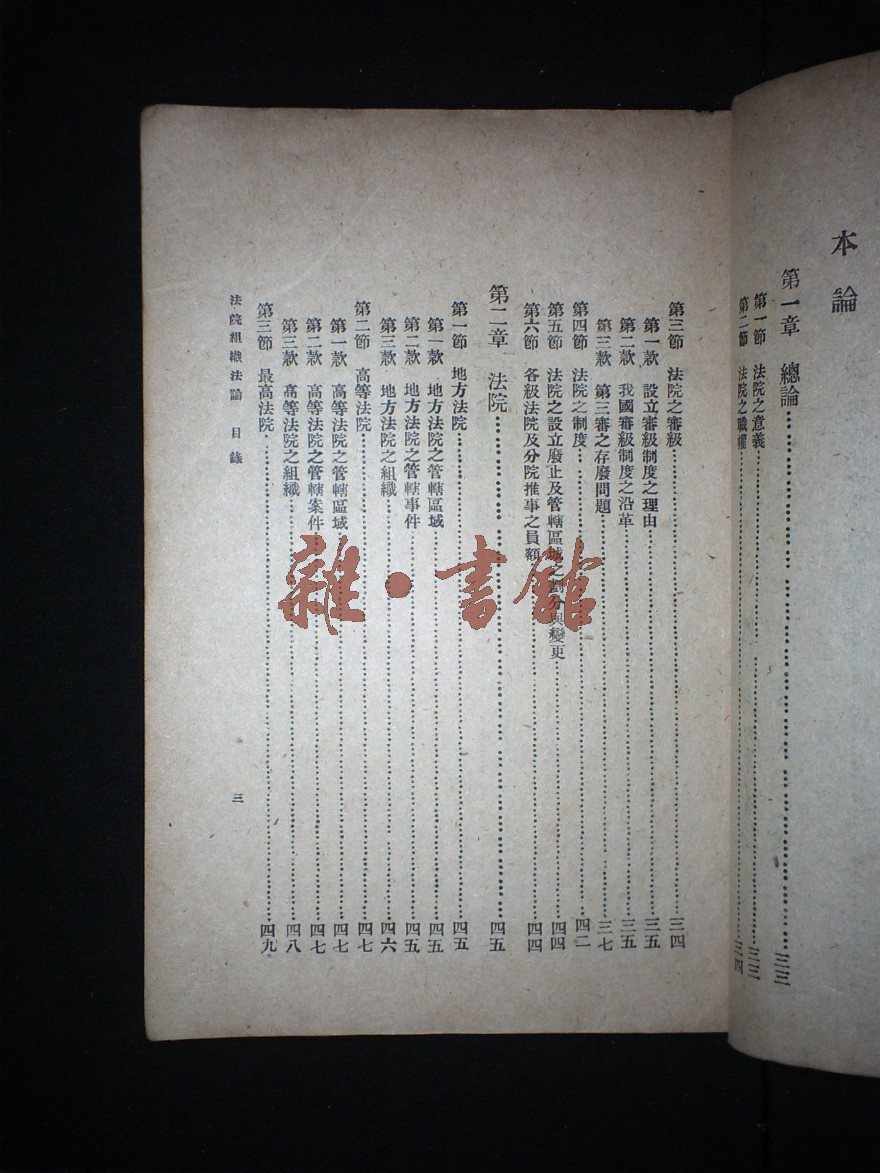 本論
第一章 總論 三三
第一節 法院之意義 三三
第二節 法院之職權 三四
第三節 法院之審級 三四
第一款 設立審級制度之理由 三五
第二款 我國審級制度之沿革 三五
第三款 第三審之存廢問題 三七
第四節 法院之制度 四二
第五節 法院之設立廢止及管轄區域之劃分與變更 四四
第六節 各級法院及分院推事之員額 四四
第二章 法院 四五
第一節 地方法院 四五
第一款 地方法院之管轄區域 四五
第二款 地方法院之管轄事件 四五
第三款 地方法院之組織 四六
第二節 高等法院 四七
第一款 高等法院之管轄區域 四七
第二款 高等法院之管轄案件 四七
第三款 高等法院之組織 四八
第三節 最高法院 四九
法院組織法論 目錄 三
雜·書館